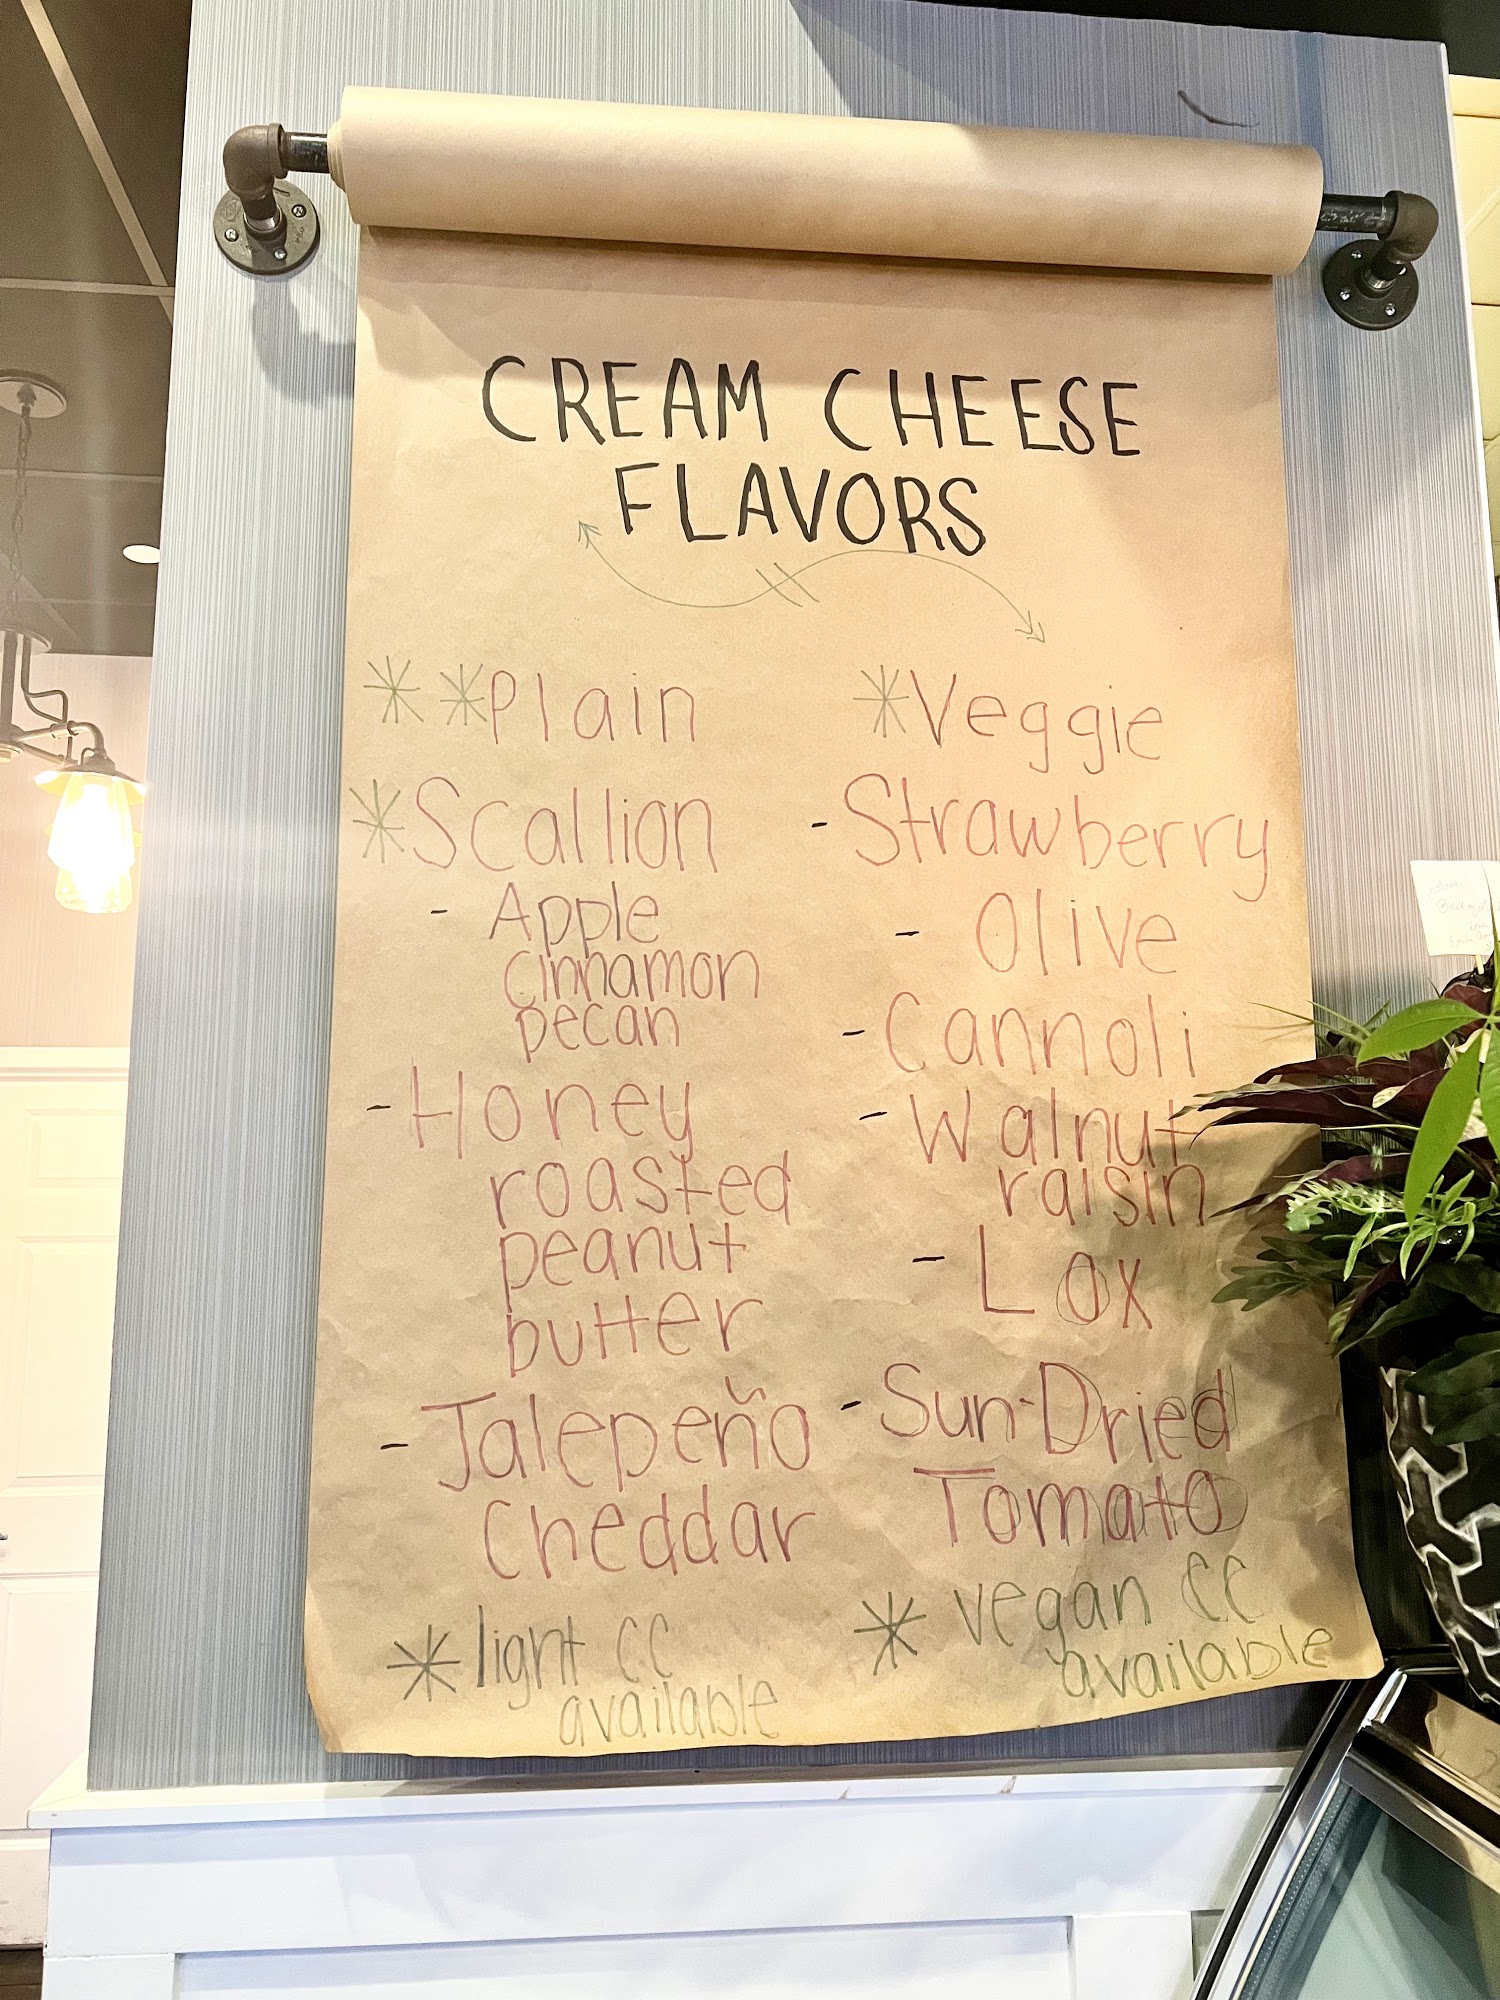 CREAM CHEESE
FLAVORS
**Plain
*Scallion
- Apple
cinnamon
pecan
- Honey
roasted
peanut
butter
- Jalepeño
Cheddar
*light CC
available
*Veggie
- Strawberry
- Olive
- Cannoli
- Walnut
raisin
- Lox
- Sun-Dried
Tomato
* vegan CC
available